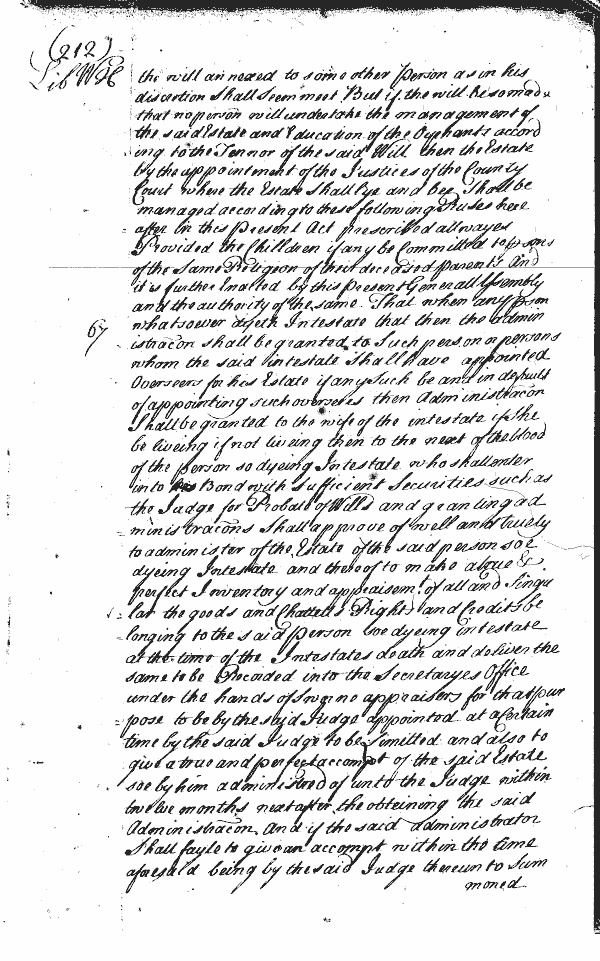 (212)
Lib WH
the will annexed to some other Person as in his
discretion Shall Seem meet But if the will be so made
that no person will undertake the management of
the said Estate and Education of the Orphants accord
ing to the Tennor of the said Will then the Estate
by the appointment of the Justices of the County
Court where the Estate Shall lye and bee Shall be
managed according to these following Rules here
after in this Present Act prescribed allwayes
Provided the Children if any be Committed to psons
of the Same Religeon of their deceased Parents And
it is further Enacted by this Present Generall Assembly
and the authority of the same That when any pson
67
whatsoever dyeth Intestate that then the admin
istracon shall be granted to Such person or persons
whom the said intestate Shall have appointed
Overseers for his Estate if any Such be and in default
of appointing such overseers then Administracon
Shall be granted to the wife of the intestate if She
be liveing if not liveing then to the next of the blood
of the person so dyeing Intestate who shall enter
into Bond with Sufficient Securities such as
the Judge for Probate of Wills and granting ad
ministracons Shall approve of well and truely
to administer of the Estate of the said person soe
dyeing Intestate and thereof to make a true &
perfect Inventory and appraisemt. of all and Singu
lar the goods and Chattells Rights and Credits be
longing to the said Person soe dyeing intestate
at the time of the Intestates death and deliver the
same to be Recorded into the Secretaryes Office
under the hands of Sworne appraisers for that pur
pose to be by the said Judge appointed at a Certain
time by the said Judge to be Limitted and also to
give a true and perfect accompt of the said Estate
soe by him administred of unto the Judge within
twelve months next after the obteining the said
Administracon And if the said administrator
Shall fayle to give an accompt within the time
aforesaid being by the said Judge thereunto Sum
moned